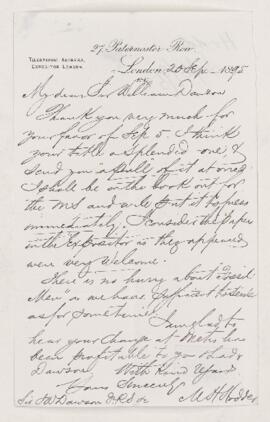 27, Paternoster Row,
TELEGRAPHIC ADDRESS,
EXPOSITOR LONDON.
London, 20 Sep. 1895
My dear Sir William Dawson
Thank you very much for
your favor of Sep 5. I think
your title a splendid one &
send you a of it at once
I shall be on the look out for
the MS and will put it to press
immediately. I consider the Papers
in the Expositor as they appeared
were very welcome.
There is no hurry about
Men as we have sufficient
as for sometime.
I am glad to
hear your change at Metis has
been profitable to you & Lady
Dawson. With Kind regards
Yours Sincerely
Sir JW Dawson F.R.S. &c M H Hodder